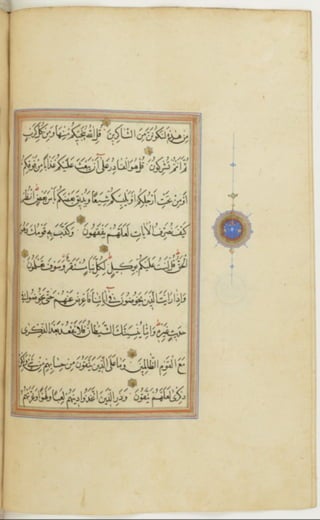 من هذه لنكونن من الشاكرين قل الله ينجيكم منها ومن كل كرب
ثم أنتم تشركون قل هو القادر على أن يبعث عليكم عذابا من فوقكم
أو من تحت أرجلكم أو يلبسكم شيعا ويذيق بعضكم بأس بعض انظر
كيف نصرف الآيات لعلهم يفقهون وكذب به قومك وهو
الحق قل لست عليكم بوكيل لكل نبإ مستقر وسوف تعلمون
وإذا رأيت الذين يخوضون في آياتنا فأعرض عنهم حتى يخوضوا في
حديث غيره وإما ينسينك الشيطان فلا تقعد بعد الذكرى
مع القوم الظالمين وما على الذين يتقون من حسابهم من شيء ولكن
ذكرى لعلهم يتقون وذر الذين اتخذوا دينهم لعبا ولهوا وغرتهم